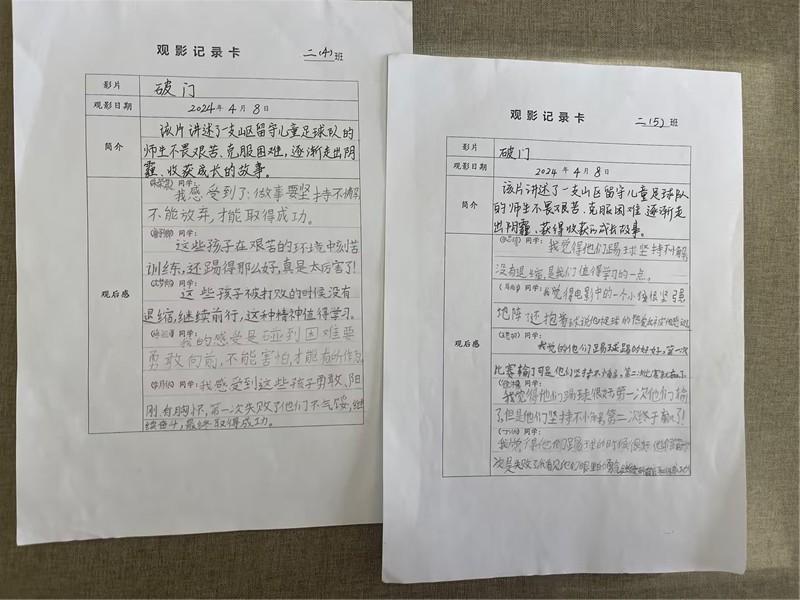 观影记录卡
二(4)班
影片 破门
观影日期 2024年4月8日
简介
该片讲述了一支山区留守儿童足球队的
师生不畏艰苦、克服困难,逐渐走出阴
霾、收获成长的故事。
观后感
同学:
我感受到了:做事要坚持不懈,
不能放弃,才能取得成功。
同学:
这些孩子在艰苦的环境中刻苦
训练,还踢得那么好,真是太厉害了!
同学:
这些孩子被打败的时候没有
退缩,继续前行,这种精神值得学习。
同学:我的感受是碰到困难要
勇敢向前,不能害怕,才能有所作为
同学:我感受到这些孩子勇敢、阳
刚、有胸怀,第一次失败了他们不气馁,继
续奋斗,最终取得成功。
观影记录卡
二(5)班
影片 破门
观影日期 2024年4月8日
简介
该片讲述了一支山区留守儿童足球队
的师生不畏艰苦、克服困难、逐渐走
出阴霾、获得收获的成长故事。
观后感
同学:我觉得他们踢球坚持不懈
没有退缩,是我们值得学习的一点。
同学:我觉得电影中的一个小接恨坚强
地阵了还抱着球说他足球的
同学:
我觉的他们足球踢的好好,第一次
比赛输了可是他们坚持不懈,第二次
同学:
我觉得他们踢球很好第一次他们输
了,但是他们坚持不小第二次终于赢了!
同学:
我觉得他们踢球的时候很好
次是失败了